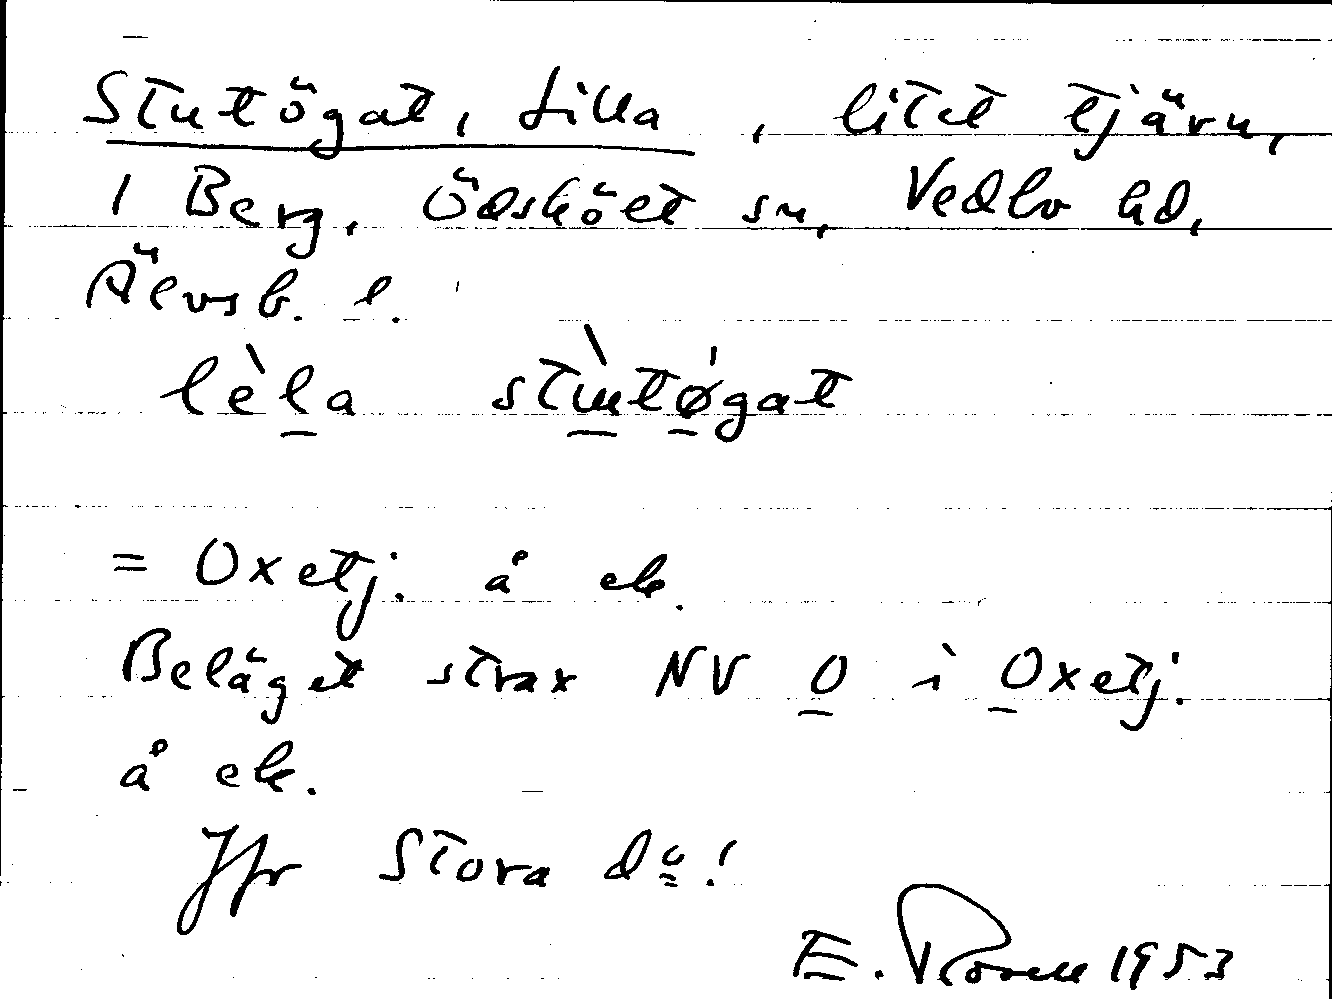 Stutögat, Lilla, litet tjärn,
i Berg, Ödskölt sn, Vedbo hd,
Älvsb. l.
lèla stùtøgat
= Oxetj. å ek.
Beläget strax NV O i Oxetj.
å ek.
Jfr Stora do!
E. 1953